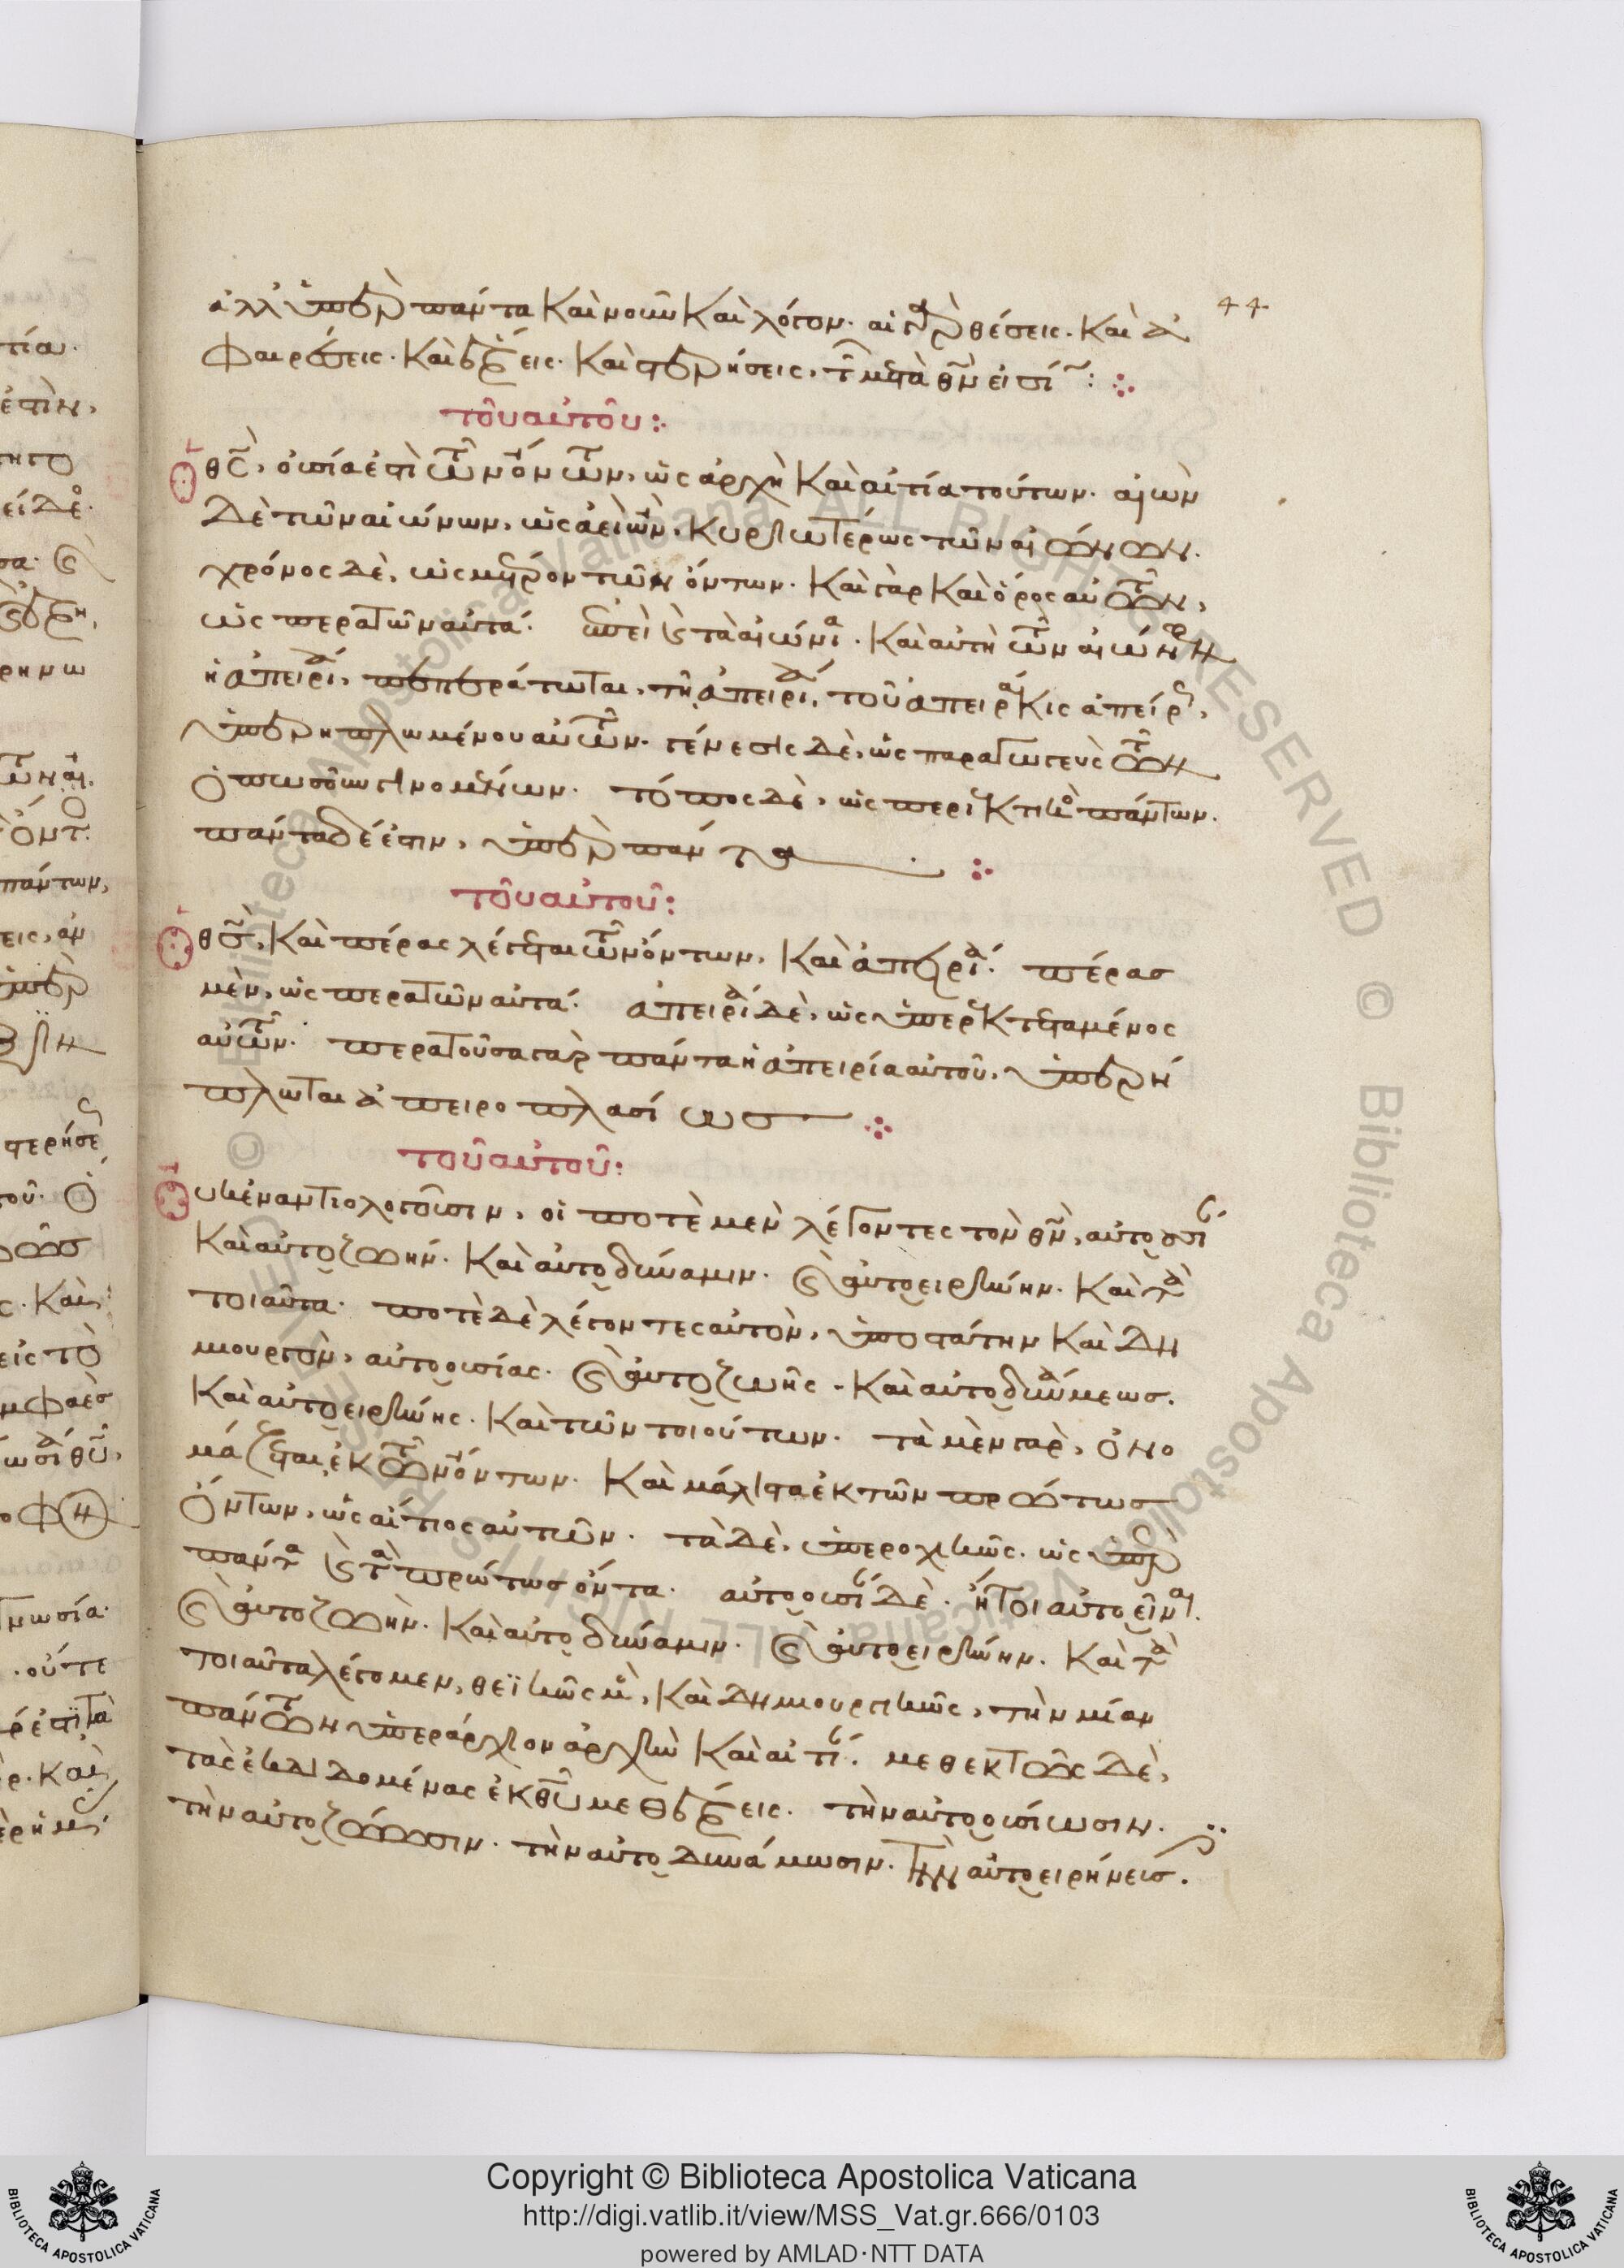 44
ἀλλ' ὑπὲρ πάντα καὶ νοῦν καὶ λόγον. αἱ γὰρ θέσεις. καὶ ἀ
φαιρέσεις. καὶ ἕξεις. καὶ στερήσεις, τῶν μετὰ θν̄ εἰσί:
τοῦ αὐτοῦ:
Ὁ θς̄, οὐσία ἐστὶ τῶν ὄντων, ὡς ἀρχὴ καὶ αἰτία τούτων. αἰὼν
δὲ τῶν αἰώνων, ὡς ἀεὶ ὢν, κυριωτέρως τῶν αἰώνων.
χρόνος δὲ, ὡς μέτρον τῶν ὄντων. καὶ γὰρ καὶ ὅρος αὐτῶν,
ὡς περατῶν αὐτά. ἐπεὶ καὶ τὰ αἰώνια. καὶ αὐτὴ τῶν αἰώνων
ἡ ἀπειρία, πεπεράτωται, τῇ ἀπειρίᾳ, τοῦ ἀπειράκις ἀπείρως,
ὑπερηπλωμένου αὐτῶν. γένεσις δὲ, ὡς παραγωγεὺς τῶν
ὁπωσοῦν γινομένων. τόπος δὲ, ὡς περιεκτικὸς πάντων.
πάντα δέ ἐστιν, ὑπὲρ πάντα
τοῦ αὐτοῦ:
Ὁ θς̄, καὶ πέρας λέγεται τῶν ὄντων, καὶ ἀπειρία. πέρας
μὲν, ὡς περατῶν αὐτά. ἀπειρία δὲ, ὡς ὑπερεκτεταμένος
αὐτῶν. περατοῦσα γὰρ πάντα ἡ ἀπειρία αὐτοῦ, ὑπερή
πλωται ἀπειροπλασίως
τοῦ αὐτοῦ:
Οὐκ ἐναντιολογοῦσιν, οἱ ποτὲ μὲν λέγοντες τὸν θν̄, αὐτοουσίαν
καὶ αὐτοζωήν. καὶ αὐτοδύναμιν. καὶ αὐτοειρήνην. καὶ τὰ
τοιαῦτα. ποτὲ δὲ λέγοντες αὐτὸν, ὑποστάτην καὶ δη
μιουργὸν, αὐτοουσίας. καὶ αὐτοζωῆς. καὶ αὐτοδυνάμεως.
καὶ αὐτοειρήνης. καὶ τῶν τοιούτων. τὰ μὲν γὰρ, ὀνο
μάζεται ἐκ τῶν ὄντων. καὶ μάλιστα ἐκ τῶν πρώτως
ὄντων, ὡς αἴτιος αὐτῶν. τὰ δὲ, ὑπεροχικῶς. ὡς ὑπὲρ
πάντα καὶ τὰ πρώτως ὄντα. αὐτοουσίαν δὲ. ἤτοι αὐτοεῖναι.
καὶ αὐτοζωὴν. καὶ αὐτοδύναμιν. καὶ αὐτοειρήνην. καὶ τὰ
τοιαῦτα λέγομεν, θεϊκῶς μὲν, καὶ δημιουργικῶς, τὴν μίαν
πάντων ὑπεράρχιον ἀρχὴν καὶ αἰτίαν. μεθεκτῶς δὲ,
τὰς ἐκδιδομένας ἐκ θῡ μεθέξεις. τὴν αὐτοουσίωσιν.
τὴν αὐτοζώωσιν. τὴν αὐτοδυνάμωσιν. τὴν αὐτοειρήνευσιν.
Copyright © Biblioteca Apostolica Vaticana
http://digi.vatlib.it/view/MSS_Vat.gr.666/0103
powered by AMLAD·NTT DATA